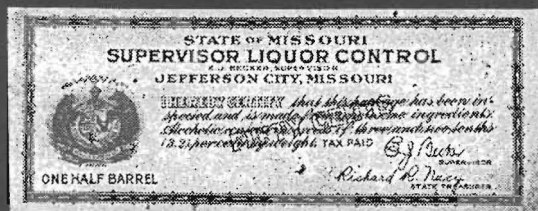 STATE OF MISSOURI
SUPERVISOR LIQUOR CONTROL
E. J. BECKER, SUPERVISOR
JEFFERSON CITY, MISSOURI
I HEREBY CERTIFY that this package has been in-
spected and is made from wholesome ingredients.
Alcoholic content in excess of three and two tenths
(3.2) percent by weight. TAX PAID
SUPERVISOR
Richard R. Nacy
STATE TREASURER
ONE HALF BARREL